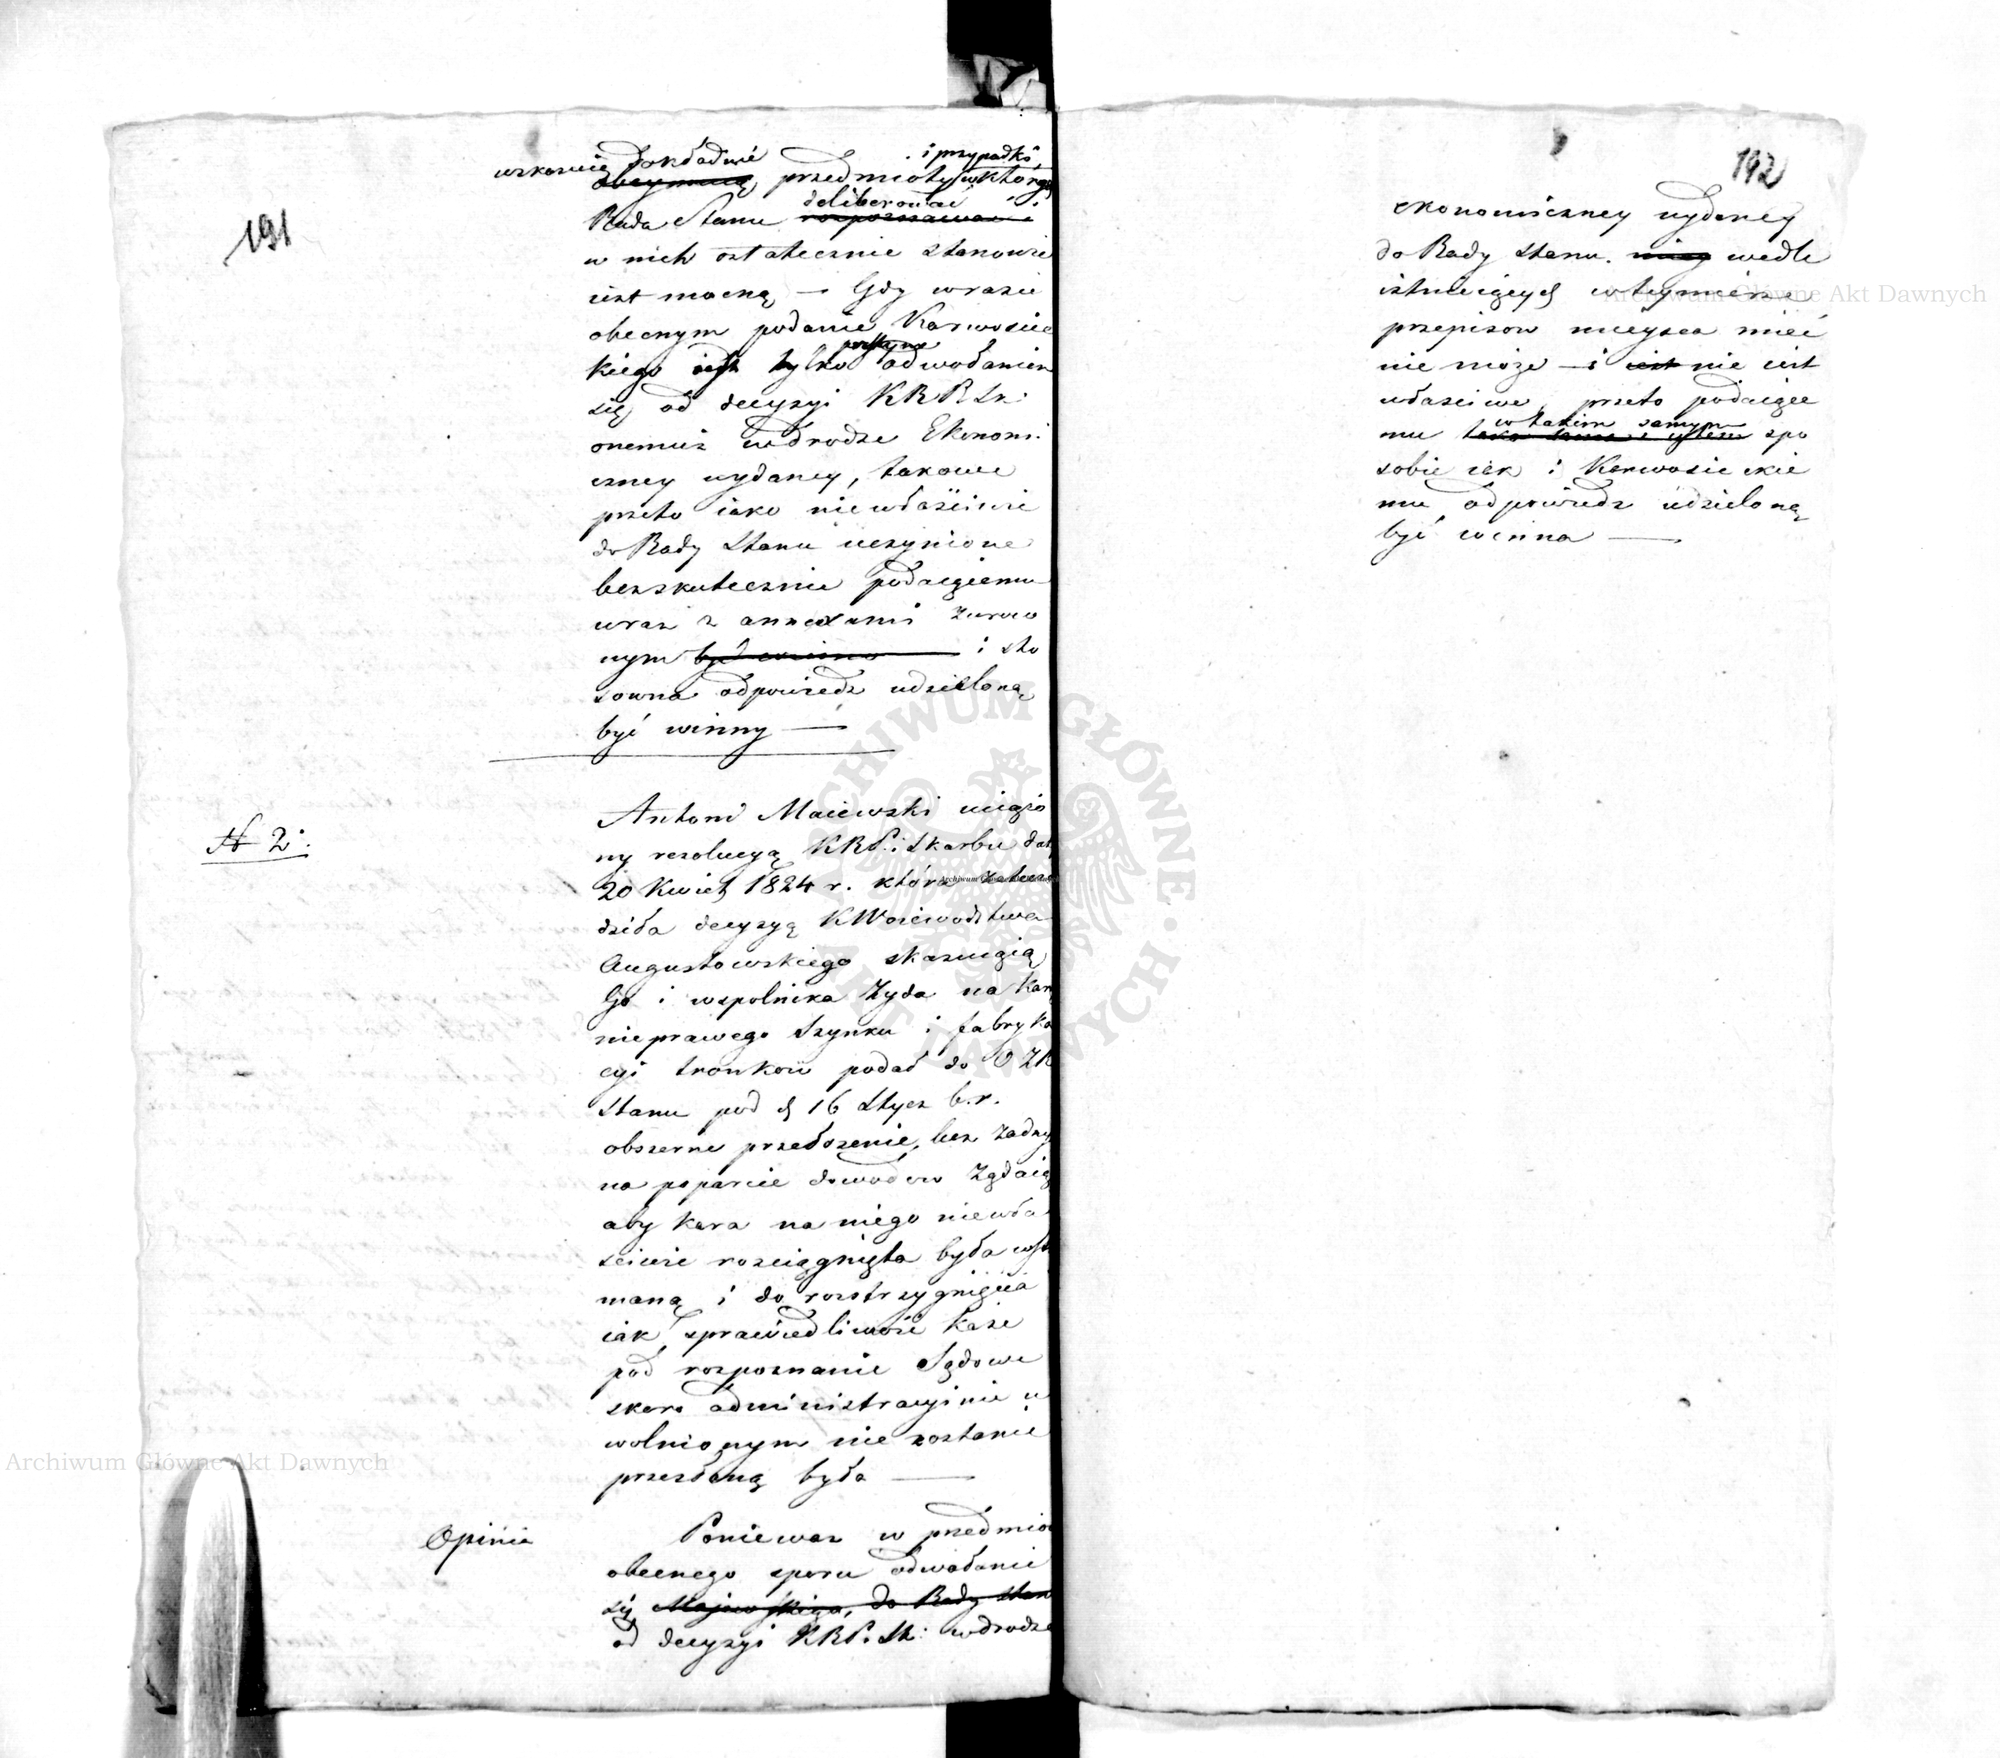 191
wskazuią dokładnie i przypadki,
obeymuią przedmioty w których
deliberować
Rada Stanu rozpoznawać i
w nich ostatecznie stanowić
iest mocną — Gdy w razie
obecnym podanie Karwosiec
prostym
kiego iest tylko odwołaniem
się od decyzyi KRP Sk:
onemuż w drodze Ekonomi
czney wydaney, takowe
przeto iako niewłaściwie
do Rady Stanu uczynione
bezskutecznie podaiącemu
wraz z annexami zwróco
nym być winno i sto
sowna odpowiedz udzieloną
być winny —
N 2.
Antoni Maiewski uciążo
ny rezolucyą KRP. i Skarbu dat
20 Kwiet 1824 r. która zatwier
dziła decyzyą K Woiewodztwa
Augustowskiego skazuiącą
Go i wspolnika Zyda na karę
nieprawego Szynku i fabryka
cyi trunków podał do OZR
Stanu pod d 16 Stycz b.r.
obszerne przełożenie, bez żadny
na poparcie dowodów żądaiąc
aby kara na niego niewła
sciwie rozciągnięta była wstrzy
maną i do rozstrzygnięcia
iak sprawiedliwość każe
pod rozpoznanie Sądowe
skoro administracyinie u
wolnionym nie zostanie
przesłaną była —
Opinia
Poniewaz w przedmio
obecnego sporu odwołanie
się Majewskiego, do Rady Stanu
od decyzyi KRP. Sk: w drodze
192
ekonomiczney wydaney
do Rady Stanu. wedle
istnieiących w tey mierze
przepisow mieysca mieć
nie może — i iest nie iest
właściwe, przeto podaiące
w takim samym
mu spo
sobie iak i Karwosieckie
mu odpowiedz udzieloną
być winna —
Archiwum Główne Akt Dawnych
Archiwum Główne Akt Dawnych
ARCHIWUM GŁÓWNE AKT DAWNYCH